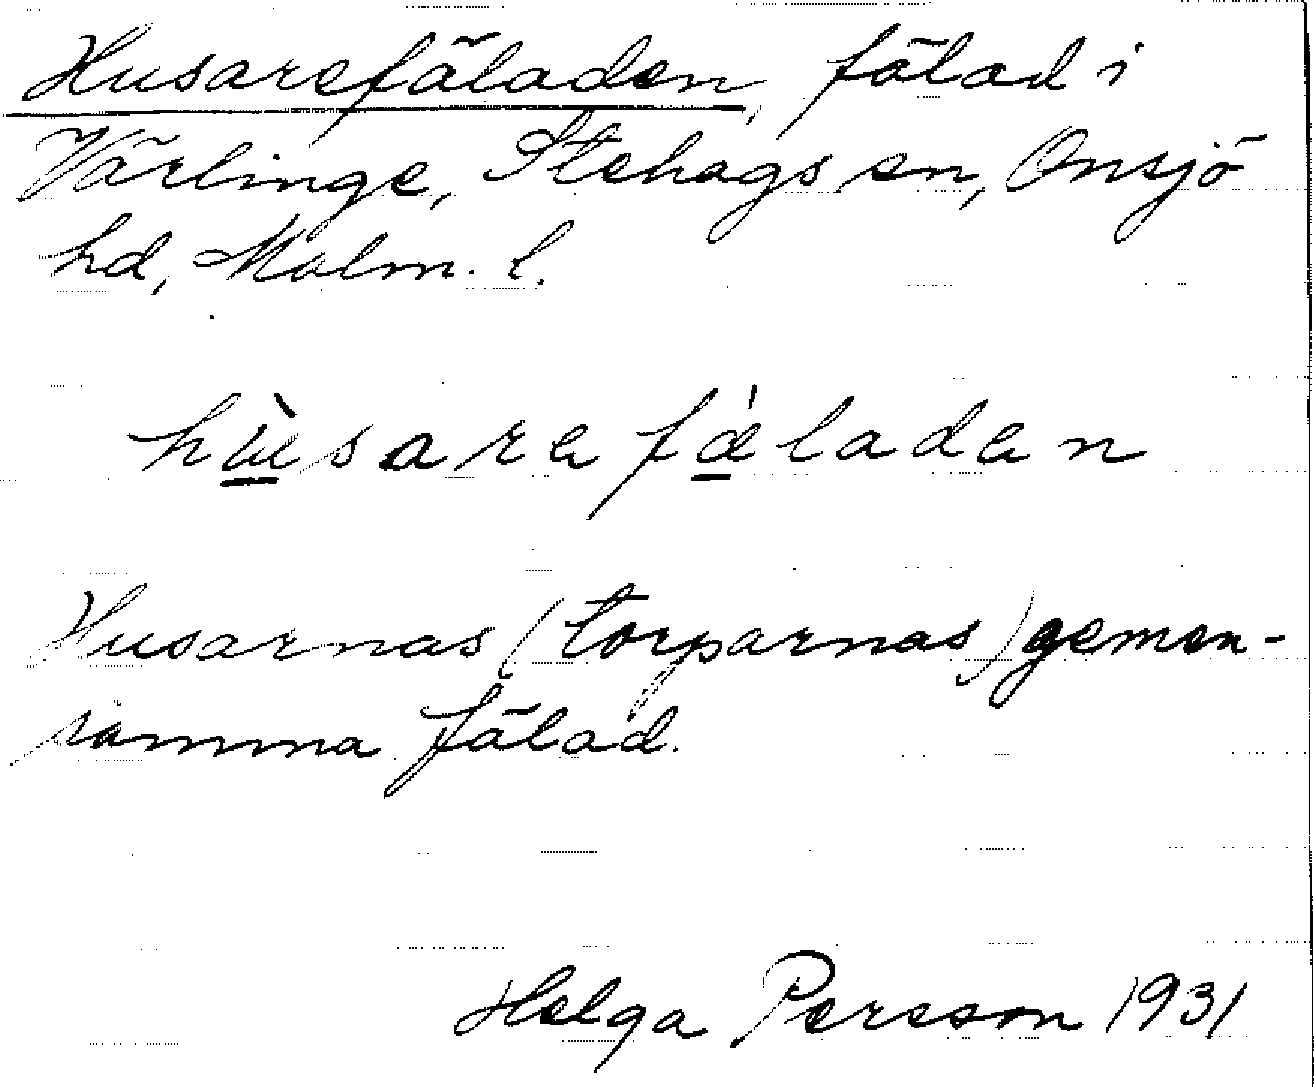 Husarefäladen, fälad i
Värlinge, Stehags sn, Onsjö
hd, Malm. l.
hùsarefǽladen
Husarnas (torparnas) gemen-
samma fälad.
Helga Persson 1931